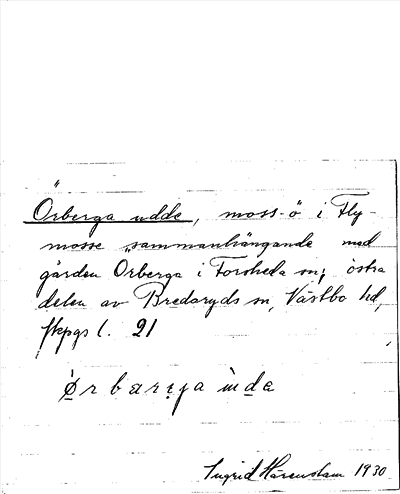 Örberga udde, moss-ö i Fly-
mosse sammanhängande med
gården Örberga i Forsheda sn, östra
delen av Bredaryds sn, Västbo hd,
Jkpgs l. 21
Ingrid Härenstam 1930